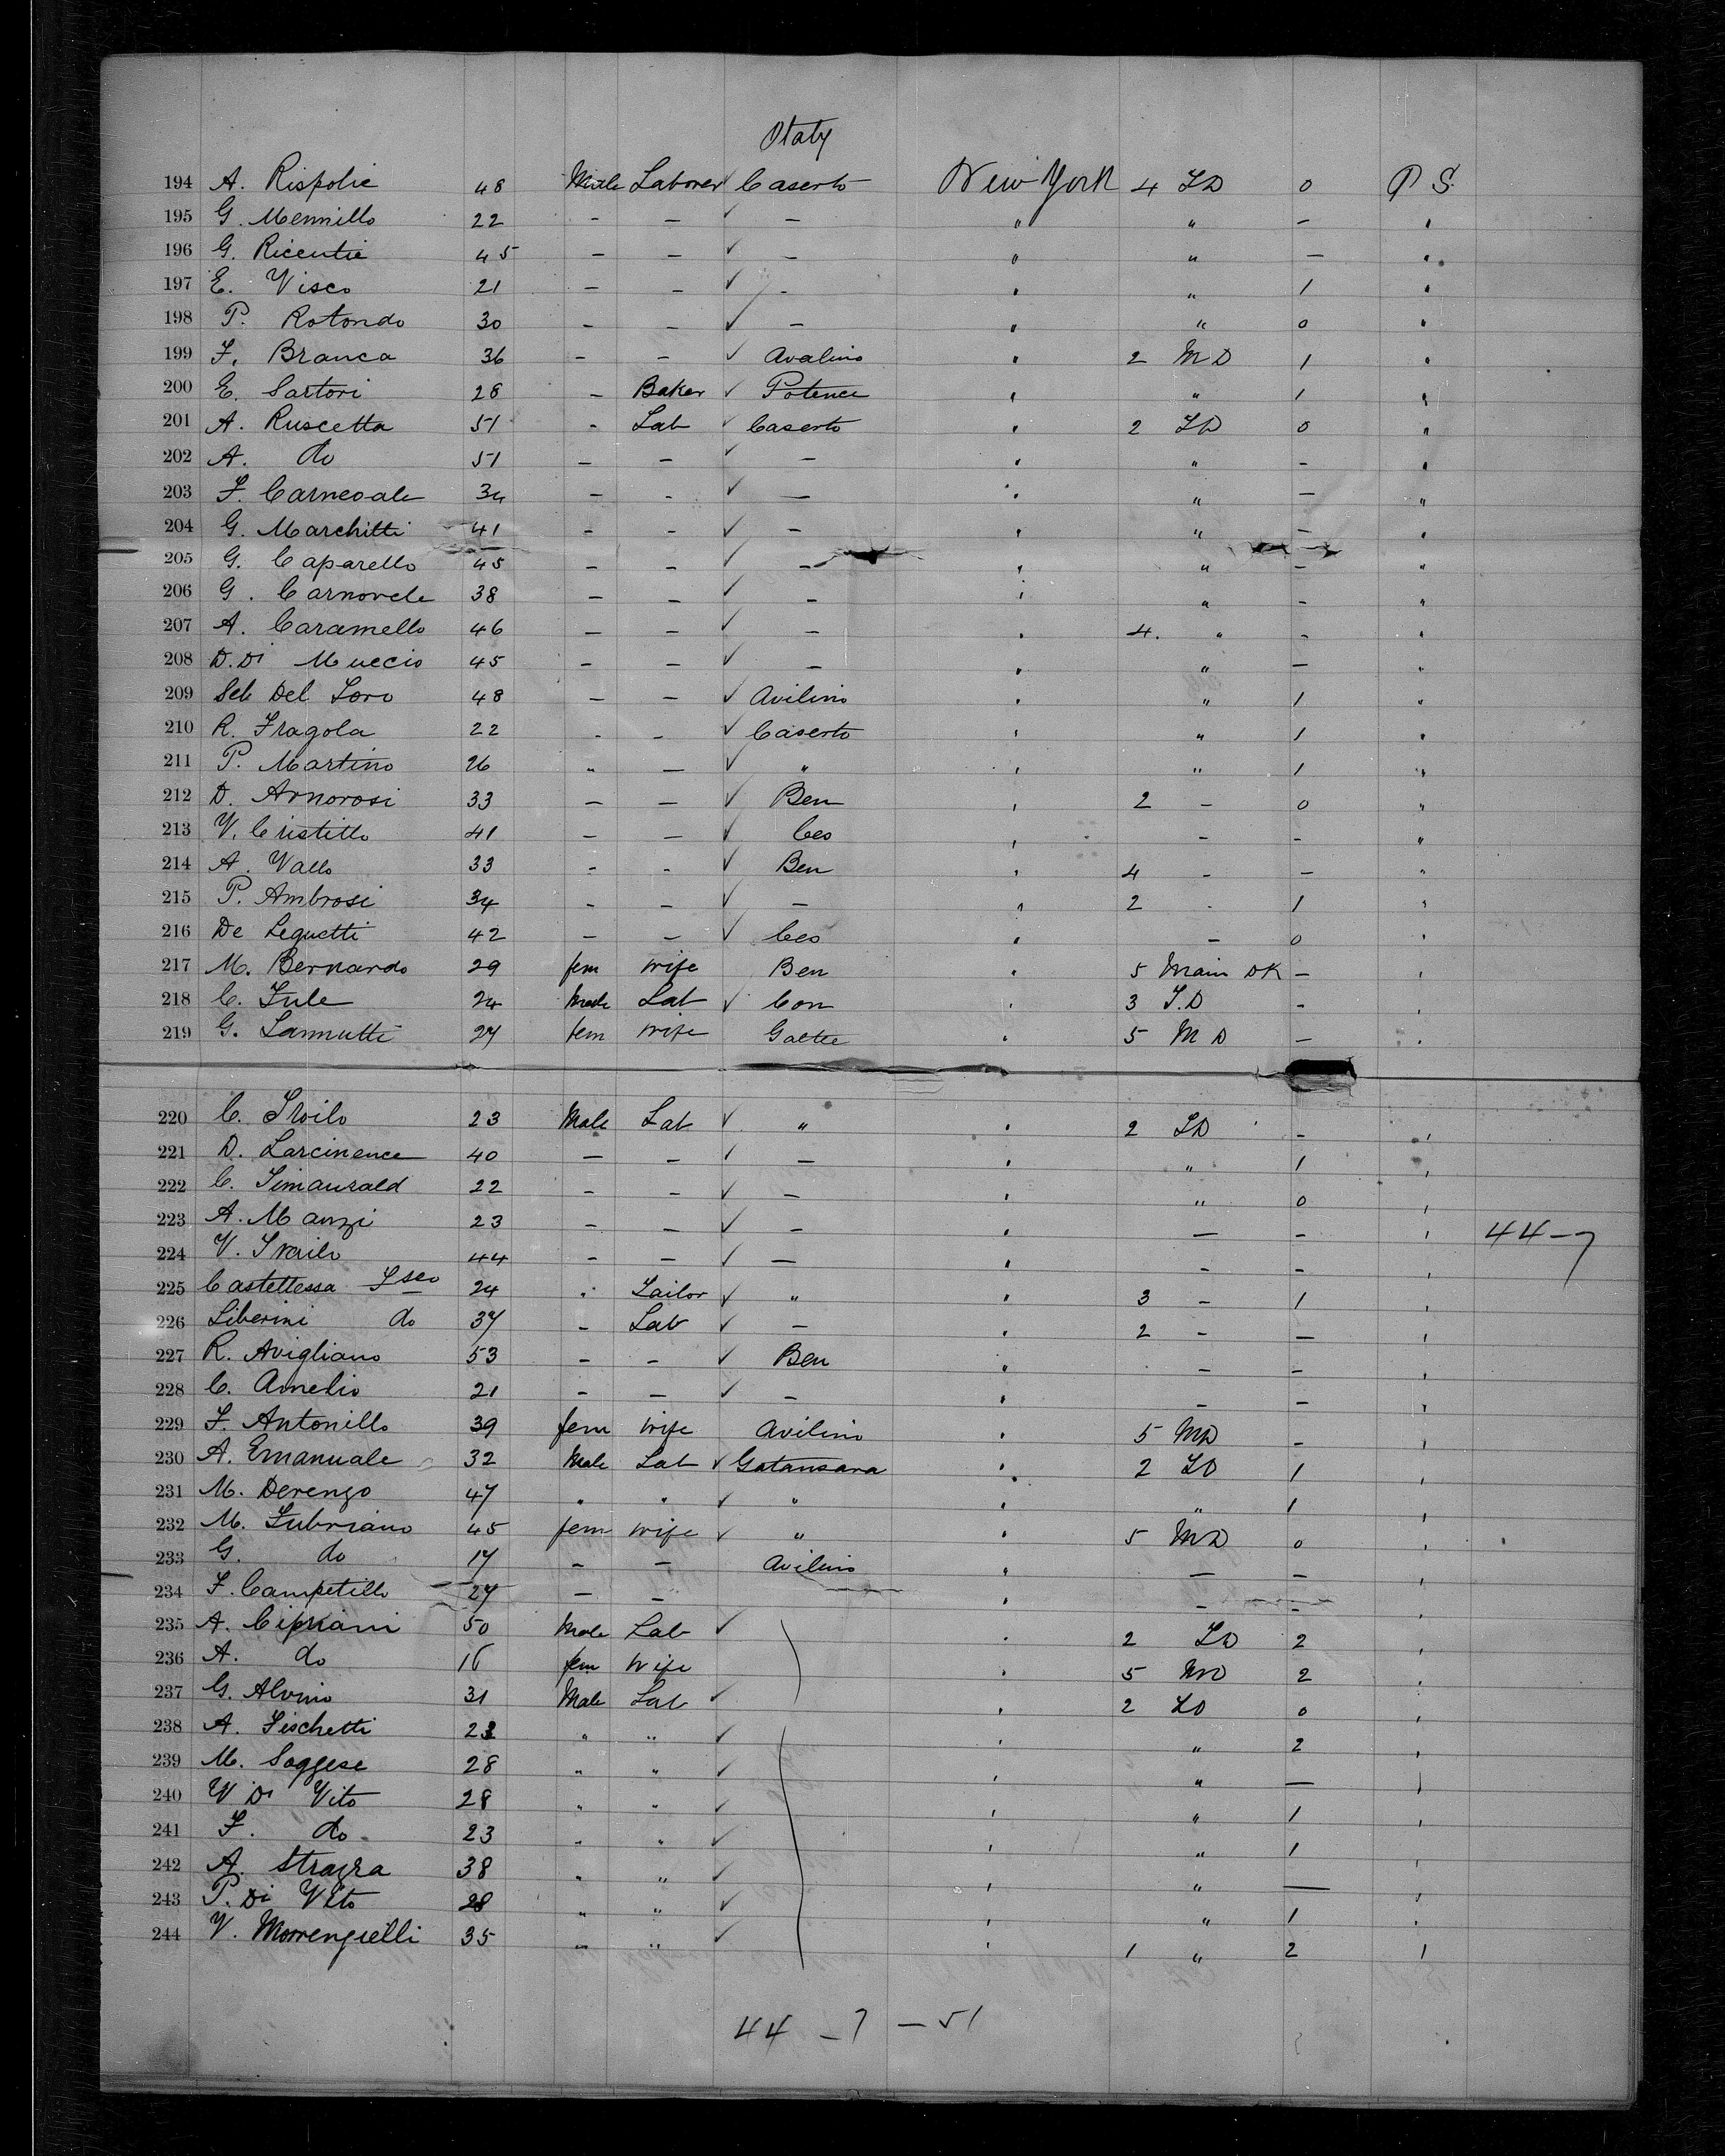 Otaly
194 A. Rispolie 48 Male Laborer ✓ Caserto New York 4 LD 0 P S.
195 G. Mennillo 22 - - ✓ - " " - "
196 G. Ricentie 45 - - ✓ - " " - "
197 E. Visco 21 - - ✓ - " " 1 "
198 P. Rotondo 30 - - ✓ - " " 0 "
199 F. Branca 36 - - ✓ Avalino " 2 MD 1 "
200 E. Sartori 28 - Baker ✓ Potence " " 1 "
201 A. Ruscetta 51 - Lab ✓ Caserto " 2 LD 0 "
202 A. do 51 - - ✓ - " " - "
203 F. Carnevale 34 - - ✓ - " " - "
204 G. Marchitti 41 - - ✓ - " " - "
205 G. Caparello 45 - - ✓ - " " - "
206 G. Carnovele 38 - - ✓ - " " - "
207 A. Caramello 46 - - ✓ - " 4. " - "
208 D. Di Muccio 45 - - ✓ - " " - "
209 Seb Del Toro 48 - - ✓ Avilino " " 1 "
210 R. Fragola 22 - - ✓ Caserto " " 1 "
211 P. Martino 26 " - ✓ " " " 1 "
212 D. Arnorosi 33 - - ✓ Ben " 2 - 0 "
213 V. Cristillo 41 - - ✓ Ces " - - "
214 A. Vallo 33 - - ✓ Ben " 4 - - "
215 P. Ambrosi 34 - - ✓ - " 2 - 1 "
216 De Lequetti 42 - - ✓ Ces " - 0 "
217 M. Bernardo 29 fem wife Ben " 5 Main DK - "
218 C. Fule 24 Male Lab ✓ Con " 3 LD - "
219 G. Lannutti 27 fem wife Galtee " 5 MD - "
220 C. Troilo 23 Male Lab ✓ " " 2 LD - "
221 D. Larcinence 40 - - ✓ - " " 1 "
222 C. Simansald 22 - - ✓ - " " 0 "
223 A. Manzi 23 - - ✓ - " - - " 44-7
224 V. Troilo 44 - - ✓ - " - - "
225 Castellessa Fsco 24 " Tailor ✓ " " 3 - 1 "
226 Liberini do 37 - Lab ✓ - " 2 - - "
227 R. Avigliano 53 - - ✓ Ben " - - "
228 C. Amelio 21 - - ✓ - " - - "
229 F. Antonillo 39 fem wife Avilino " 5 MD - "
230 A. Emanuale 32 Male Lab ✓ Gatansara " 2 LD 1 "
231 M. Derengo 47 " " ✓ " " " 1 "
232 M. Lubriano 45 fem wife ✓ " " 5 MD 0 "
233 G. do 17 - - Avilino " - - "
234 F. Campetillo 27 - - " - - "
235 A. Cipriani 50 Male Lab ✓ " 2 LD 2 "
236 A. do 16 fem Wife " 5 MD 2 "
237 G. Alvino 31 Male Lab ✓ " 2 LD 0 "
238 A. Fischetti 23 " " ✓ " " 2 "
239 M. Saggese 28 " " ✓ " " - "
240 V Di Vito 28 " " ✓ " " 1 "
241 F. do 23 " " ✓ " " 1 "
242 A. Strazza 38 " " ✓ " " - "
243 P. Di Vito 28 " " ✓ " " 1 "
244 V. Morrengielli 35 " " ✓ " 1 " 2 "
44 - 7 - 51